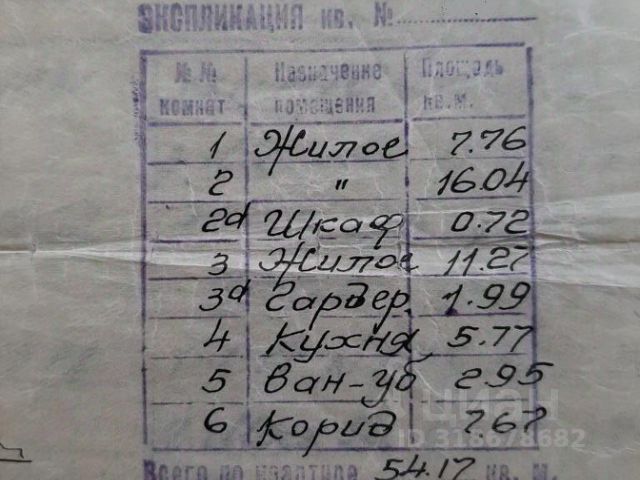 ЭКСПЛИКАЦИЯ кв. №
№№ комнат Назначение помещения Площадь кв.м.
1 Жилое 7.76
2 " 16.04
2а Шкаф 0.72
3 Жилое 11.27
3а Гардер. 1.99
4 Кухня 5.77
5 Ван-уб 2.95
6 Корид 7.67
Всего по квартире 54.17 кв. м.
ЦИАН
ID 316678682